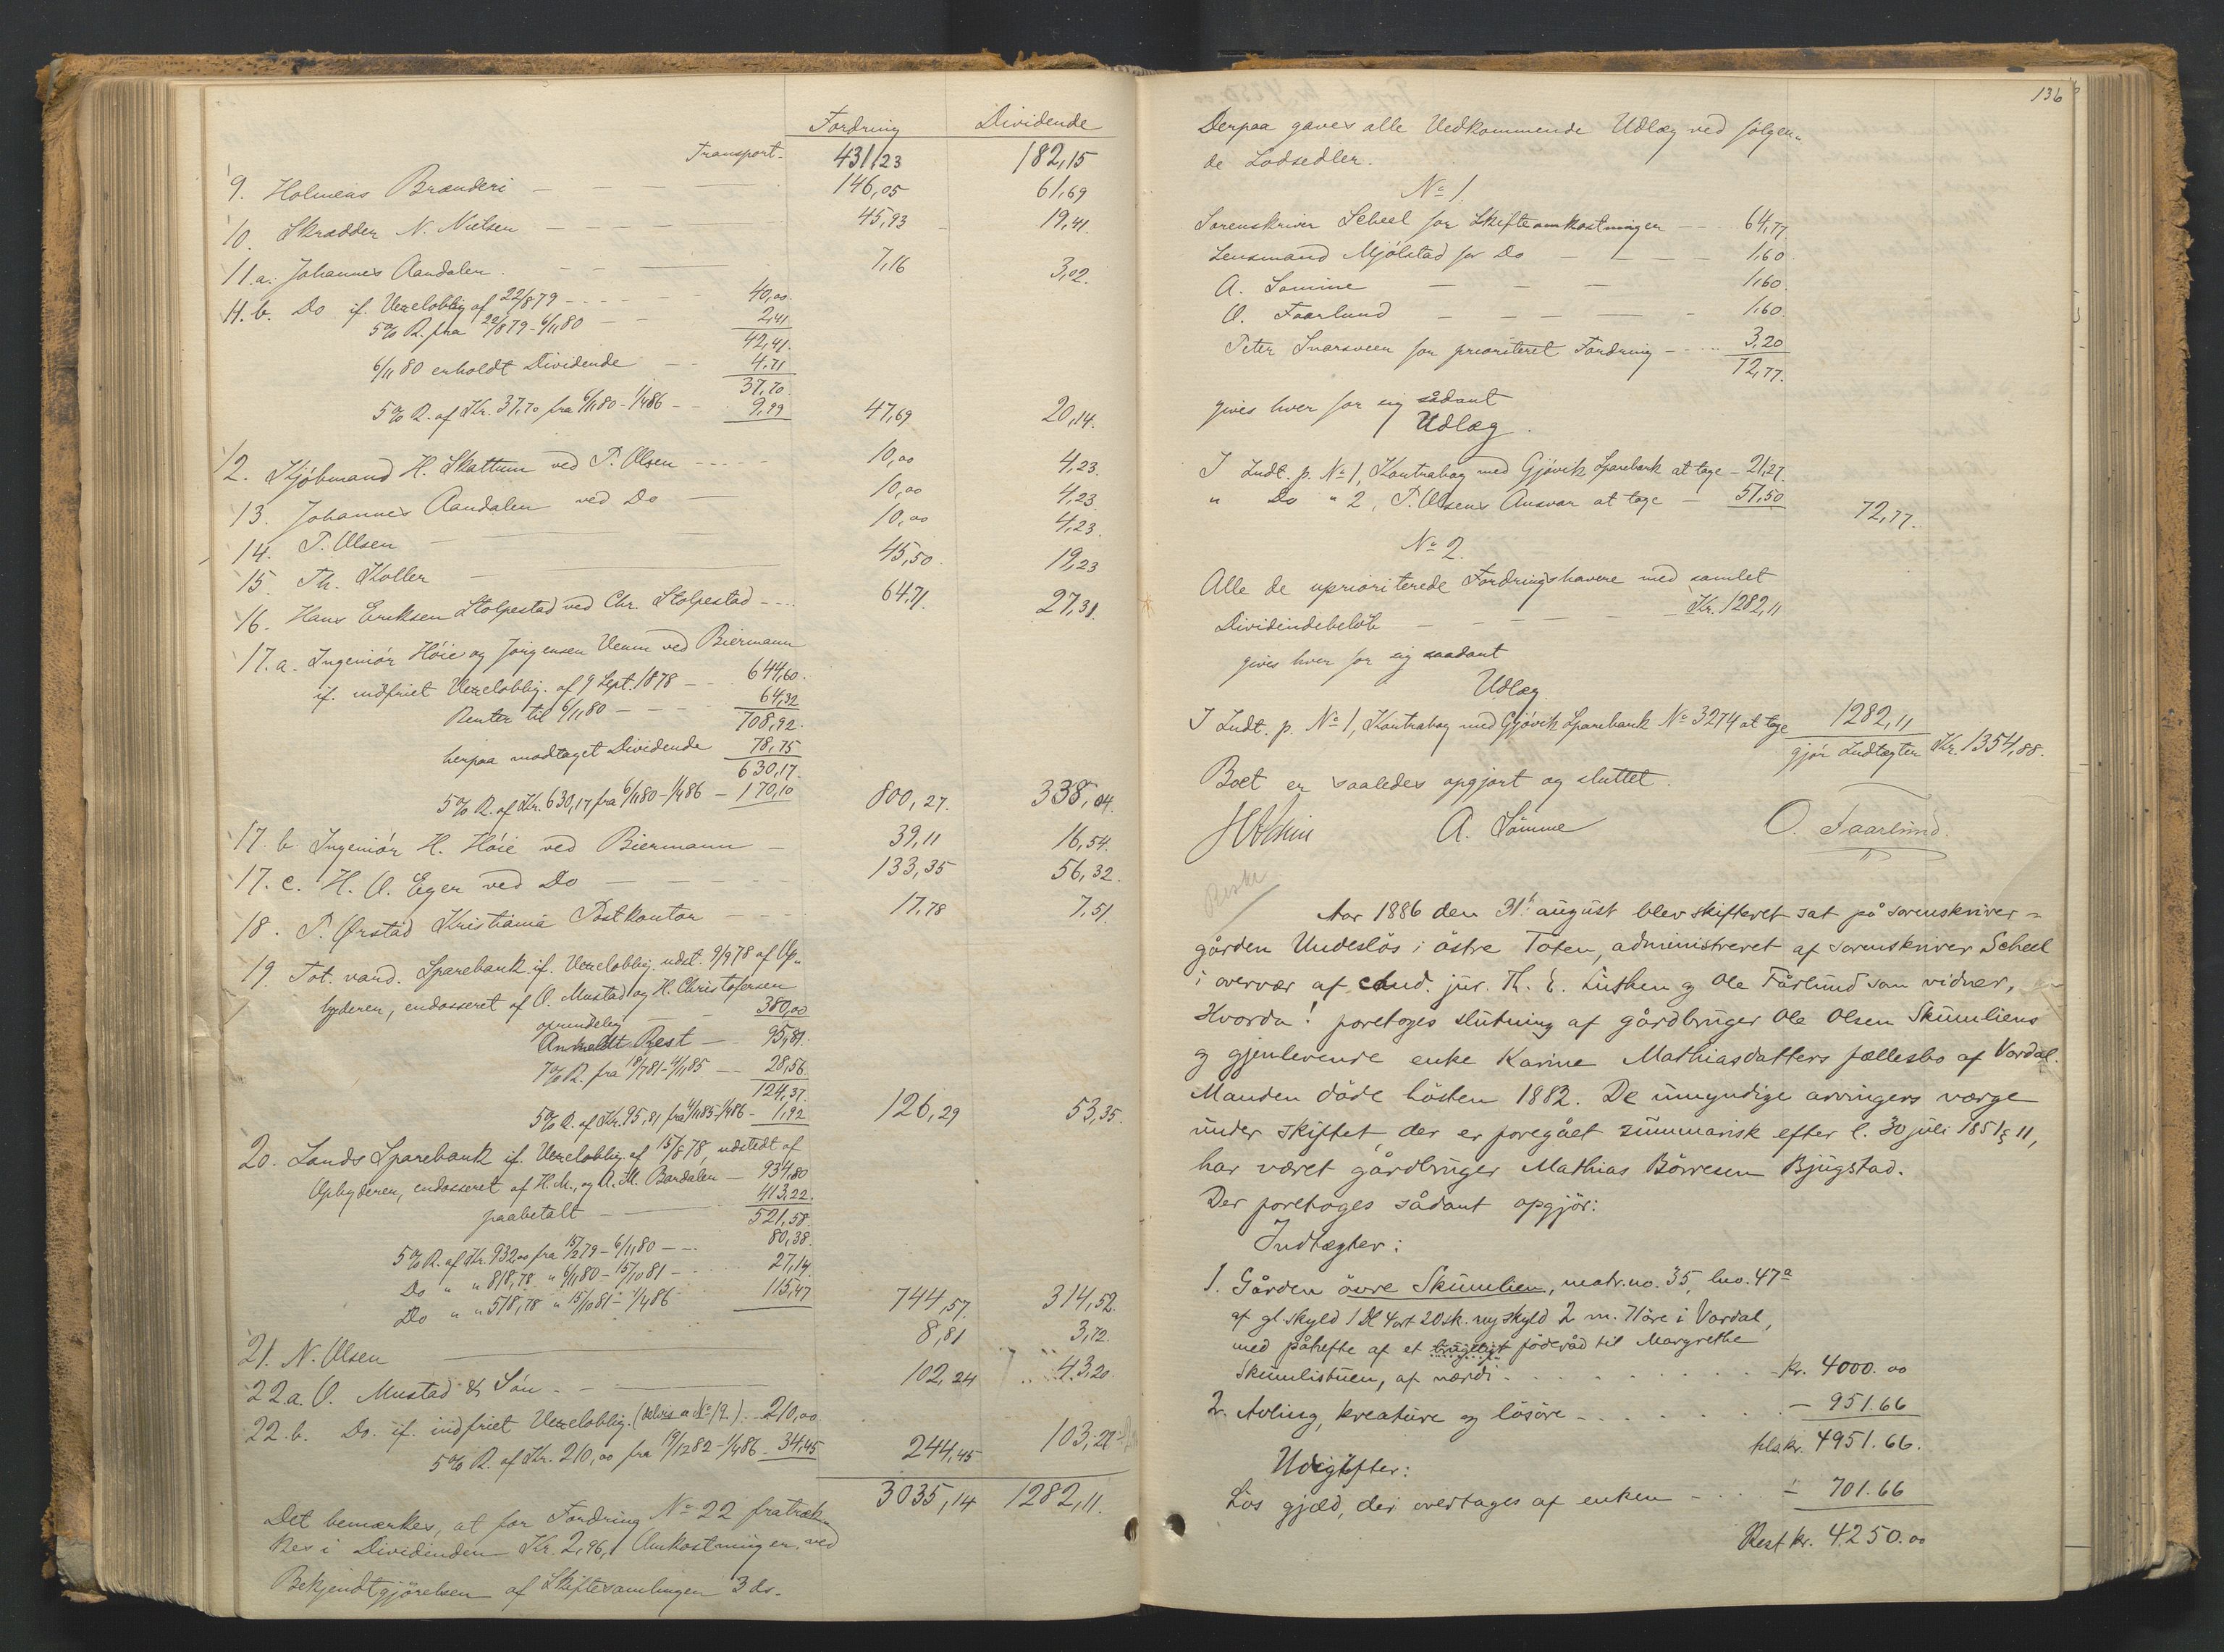 Fordring Dividende
Transport. 431,23 182,15
9. Holmens Brænderi — — — 146,05 61,69
10. Skrædder N. Nielsen — — — 45,93 19,41
11.a. Johannes Aandalen. — — 7,16 3,02.
11.b. Do if. Vexeloblig af 22/8 79 — — — 40,00.
5% R. fra 22/8 79 - 6/11 80 — 2,41
42,41.
6/11 80 erholdt Dividende — 4,71
37,70.
5% R. af Kr. 37,70 fra 6/11 80 - 1/4 86 — 9,99 47,69 20,14.
12. Kjöbmand H. Skattum ved P. Olsen — — 10,00 4,23.
13. Johannes Aandalen ved Do — 10,00 4,23.
14. P. Olsen — 10,00 4,23.
15. Th. Koller — 45,50. 19,23
16. Hans Eriksen Stolpestad ved Chr. Stolpestad — — 64,71. 27,31.
17.a. Ingeniör Höie og Jörgensen Venm ved Biermann
if. indfriet Vexeloblig. af 9 Sept. 1878 — 644,60.
Renter til 6/11 80 — — — 64,32
708,92.
herpaa modtaget Dividende 78,75
630,17.
5% R. af Kr. 630,17 fra 6/11 80 - 1/4 86 — 170,10 800,27. 338,04.
17.b Ingeniör H. Höie ved Biermann — 39,11 16,54.
17.c. H. O. Eger ved Do — — — 133,35 56,32.
18. P. Ørstad Kristiania Postkontor — — 17,78 7,51.
19. Tot. vard. Sparebank if. Vexeloblig. udst. 9/9 78 af Op-
byderen, endosseret af O. Mustad og H. Christofersen
oprindelig — — 380,00
Anmeldt Rest — 95,81.
7% R. fra 18/7 81 - 4/11 85 — 28,56.
124,37.
5% R. af Kr. 95,81 fra 4/11 85 - 1/4 86 — 1,92 126,29 53,35.
20. Lands Sparebank if. Vexeloblig. af 15/8 78, udstedt af
Opbyderen, endosseret af H. M., og A. M. Bardalen — 934,80
paabetalt — 413,22.
521,58.
5% R. af Kr. 932,00 fra 15/2 79 - 6/11 80 — 80,38.
Do " " 818,78 " 6/11 80 - 15/10 81 — 27,14.
Do " " 518,78 " 15/10 81 - 1/4 86 115,47 744,57. 314,52.
21. N. Olsen — 8,81 3,72.
22.a. O. Mustad & Sön. — — 102,24 43,20.
22.b. Do. if. indfriet Vexeloblig. (delvis a No 19.) — 210,00
5% R. af Kr. 210,00 fra 19/12 82 - 1/4 86 — 34,45 244,45 103,28
3035,14 1282,11.
Det bemærkes, at for Fordring No 22 fratræk-
kes i Dividenden Kr. 2,96, Omkostninger ved
Bekjendtgjörelsen af Skiftesamlingen 3 ds.
136
Derpaa gaves alle Vedkommende Udlæg ved fölgen-
de Lodsedler.
No 1.
Sorenskriver Scheel for Skifteomkostninger — — 64,77.
Lensmand Mjölstad for Do — — — 1,60.
A. Sömme — — — 1,60.
O. Faarlund — — — — 1,60.
Peter Svarsveen for prioriteret Fordring — — 3,20
72,77.
gives hver for sig sådant
Udlæg.
I Indt. p. No 1, Kontrabog med Gjövik Sparebank at tage — 21,27.
" Do " 2, P. Olsens Ansvar at tage — 51,50 72,77.
No 2.
Alle de uprioriterede Fordringshavere med samlet
Dividendebelöb — — — — — Kr. 1282,11
gives hver for sig saadant
Udlæg
I Indt. p. No 1, Kontrabog med Gjövik Sparebank No 3274 at tage 1282,11
gjör Indtægten Kr. 1354,88.
Boet er saaledes opgjort og sluttet.
A. Sömme O. Faarlund.
Aar 1886 den 31te august blev skifteret sat på sorenskriver-
gården Undeslös i östre Toten, administreret af sorenskriver Scheel
i overvær af cand. jur. Th. E. Luthen og Ole Fårlund som vidner,
Hvorda! foretoges slutning af gårdbruger Ole Olsen Skumliens
og gjenlevende enke Karine Mathiasdatters fællesbo af Vardal.
Manden döde hösten 1882. De umyndige arvingers værge
under skiftet, der er foregået summarisk efter l. 30 juli 1851 § 11,
har været gårdbruger Mathias Börresen Bjugstad.
Der foretoges sådant opgjör:
Indtægter:
1. Gården övre Skumlien, matr.no. 35, lno. 47a
af gl. skyld 1 Dl 4 ort 20 sk. ny skyld 2 m. 71 öre i Vardal,
med påhefte af et brugeligt föderåd til Margrethe
Skumlistuen, af værdi . . . . . kr. 4000.00
2. Avling, kreature og lösöre — . . . . — 951.66
tils. kr. 4951.66.
Udgifter:
Lös gjæld, der overtages af enken — . . — 701.66
Rest kr. 4250.00